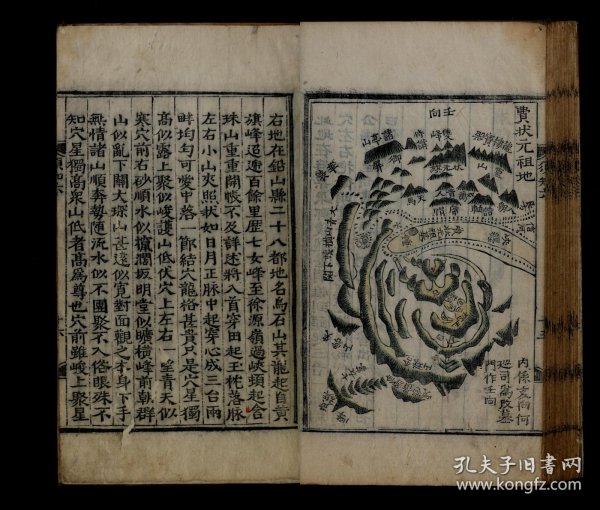 費狀元祖地
壬向
雙峰
内係亥向何
巡司寫改墓
門作壬向
右地在鉛山縣二十八都地名烏石山其龍起自黃
旗峰迢遞百餘里歷七女峰至徐源嶺過峽頭起含
珠山重重開帳不及詳述將入首穿田起玉枕落脉
左右小山夾照狀如日月正脉中起穿心成三台兩
畔均勻可愛中落一節結穴龍格甚貴只是穴星獨
高似露上聚似峻護山低伏穴上左右一望青天似
寒穴前右砂順水似攛瀾坂明堂似曠橫峰前朝群
山似亂下關大琛山甚遠似寬對面觀之本身下手
無情諸山順奔勢隨流水似不團聚不入俗眼殊不
知穴星獨高衆山低者高爲尊也穴前雖峻上聚星
十六
孔夫子旧書网
www.kongfz.com